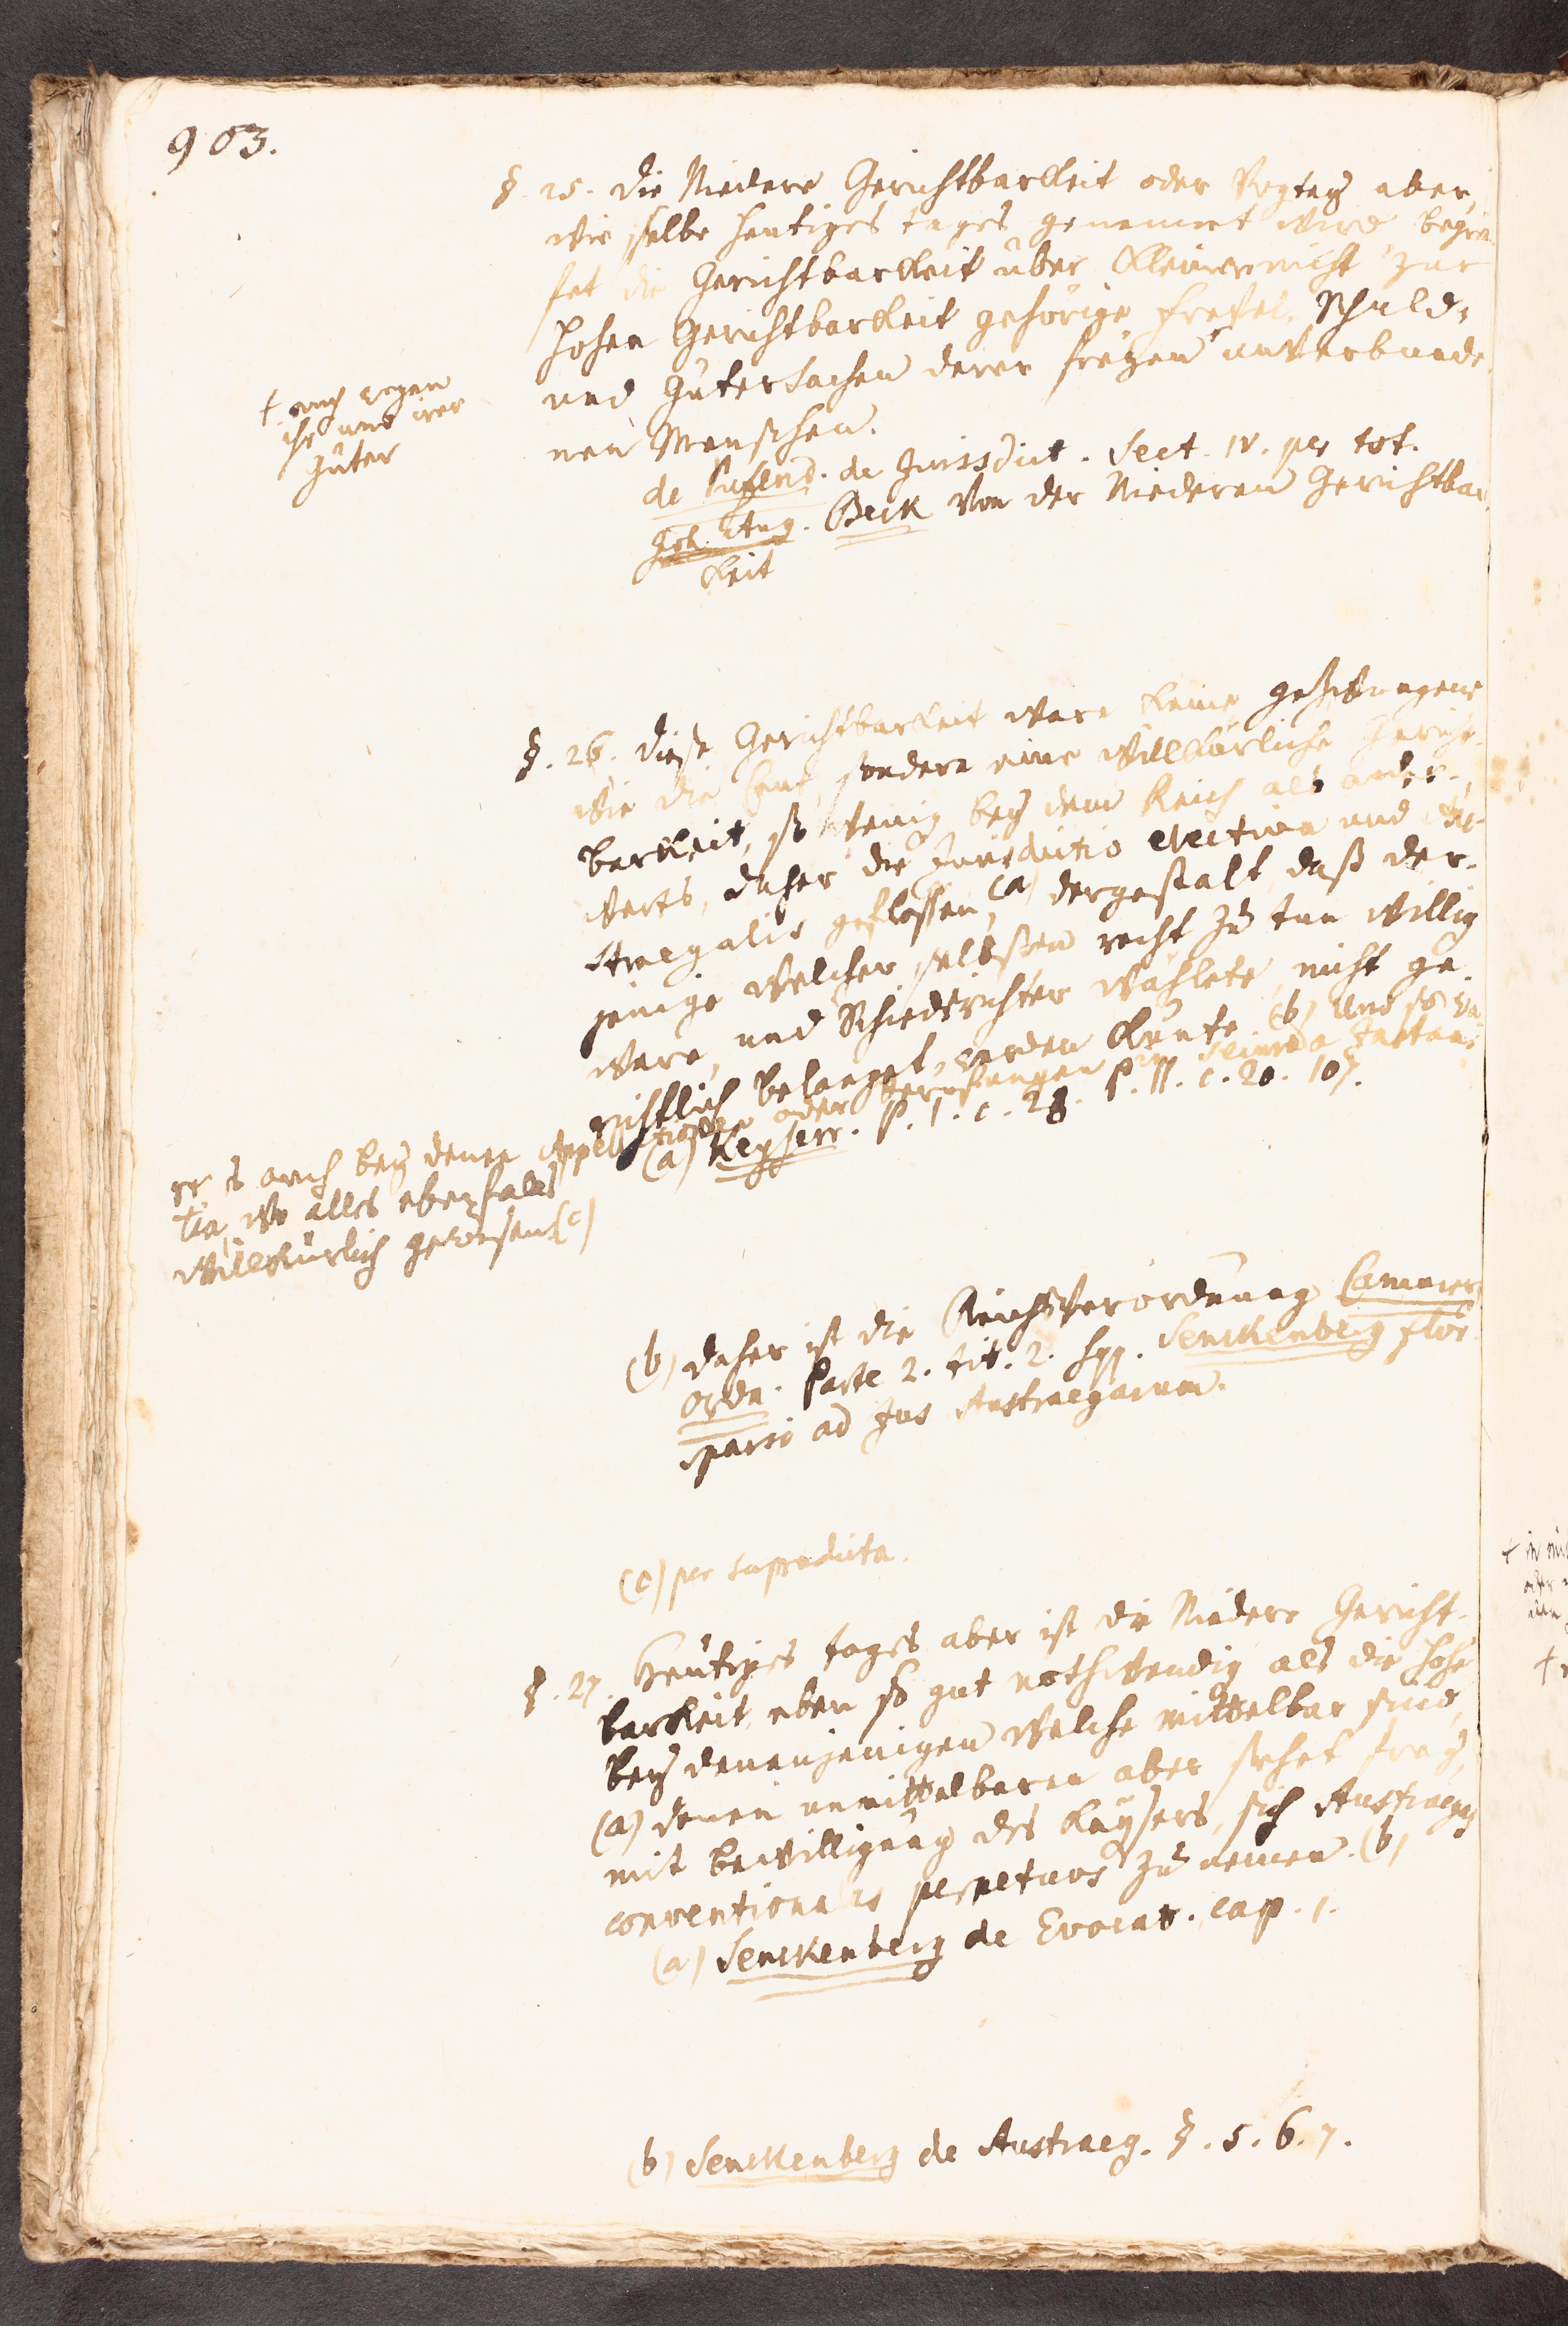 903.
§. 25. die Niedere Gerichtbarkeit oder Vogtey aber,
wie selbe heutiges tages genennet wird begrei-
fet die Gerichtbarkeit über kleinere nicht zur
hohen Gerichtbarkeit gehörige frefel, Schuld-
und Gütersachen derer freyen † unverbunde-
nen Menschen.
† auch wegen
ihr und irer
Güter
de Pufend. de Jurisdict. Sect. IV. per tot.
Joh. Aug. Beck von der Niederen Gerichtbar-
keit
§. 26. diese Gerichtbarkeit ware keine gezwungene
wie die Cent, sondern eine willkürliche Gericht-
barkeit, so wenig bey dem Reich als ander-
werts, daher die Jurisdictio electiva und Au-
straegalis geflossen, (a) dergestalt, daß der-
jenige welcher selbsten recht zu tun willig
ware, und Schiedsrichter wählete, nicht ge-
richtlich belanget werden kunte. (b) Und so wa-
re es auch bey denen Appellationen oder berufungen in secunda Instan-
tia, wo alles ebenfalls
willkürlich gewesen (c)
(a) Kayserr. P. I. c. 28. P. II. c. 20. 107.
(b) daher ist die Reichsverordnung Cammer
Ordn. Parte 2. tit. 2. sqq. Senckenberg flor.
sparsi ad Jus Austraegarum.
(c) per supradicta.
§. 27. Heutiges tages aber ist die Niedere Gericht-
barkeit eben so gut nothwendig als die hohe
bey denenjenigen welche mittelbar sind,
(a) denen unmittelbaren aber stehet frey,
mit bewilligung des Kaysers, sich Austraegas
conventionales perpetuos zu nemen. (b)
(a) Senckenberg de Evocat. cap. 1.
(b) Senckenberg de Austraeg. §. 5. 6. 7.